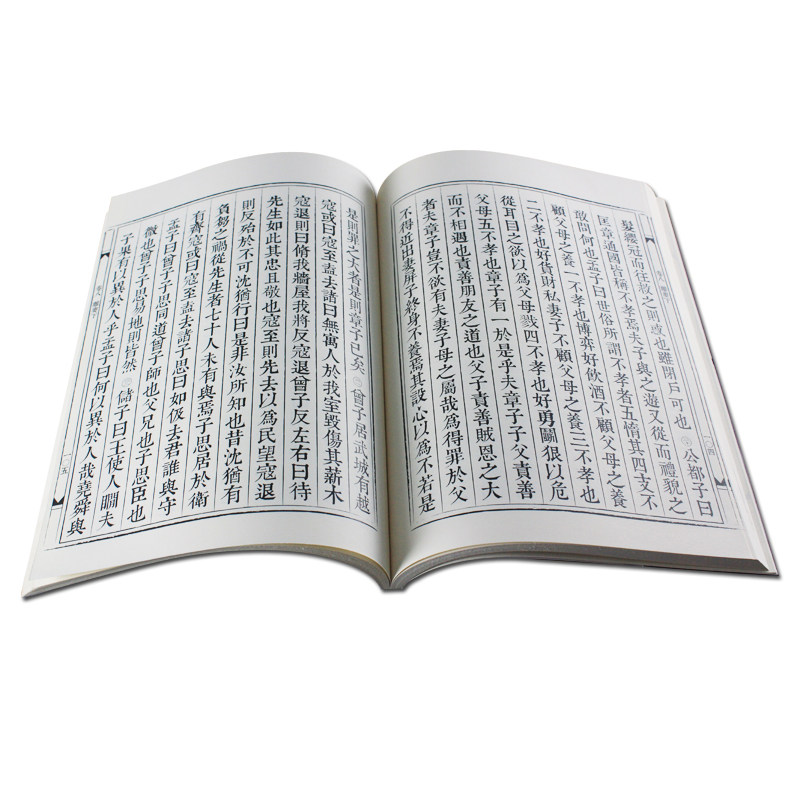 髮纓冠而往救之則惑也雖閉戶可也　公都子曰
匡章通國皆稱不孝焉夫子與之遊又從而禮貌之
敢問何也孟子曰世俗所謂不孝者五惰其四支不
顧父母之養一不孝也博弈好飲酒不顧父母之養
二不孝也好貨財私妻子不顧父母之養三不孝也
從耳目之欲以爲父母戮四不孝也好勇鬭狠以危
父母五不孝也章子有一於是乎夫章子子父責善
而不相遇也責善朋友之道也父子責善賊恩之大
者夫章子豈不欲有夫妻子母之屬哉爲得罪於父
不得近出妻屏子終身不養焉其設心以爲不若是
是則罪之大者是則章子已矣　曾子居武城有越
寇或曰寇至盍去諸曰無寓人於我室毀傷其薪木
寇退則曰脩我牆屋我將反寇退曾子反左右曰待
先生如此其忠且敬也寇至則先去以爲民望寇退
則反殆於不可沈猶行曰是非汝所知也昔沈猶有
負芻之禍從先生者七十人未有與焉子思居於衛
有齊寇或曰寇至盍去諸子思曰如伋去君誰與守
孟子曰曾子子思同道曾子師也父兄也子思臣也
微也曾子子思易地則皆然　儲子曰王使人瞯夫
子果有以異於人乎孟子曰何以異於人哉堯舜與